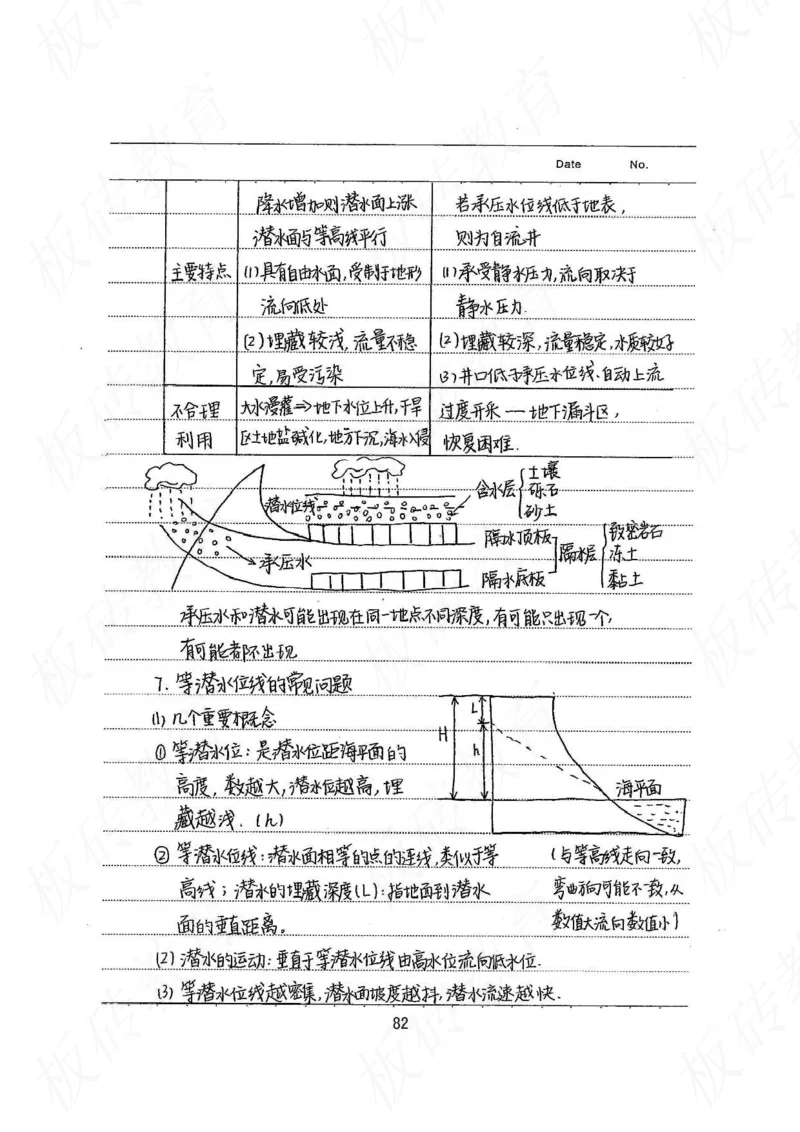 Date No.
降水增加则潜水面上涨 若承压水位线低于地表，
潜水面与等高线平行 则为自流井
主要特点 (1)具有自由水面，受制于地形 (1)承受静水压力，流向取决于
流向低处 静水压力.
(2)埋藏较浅，流量不稳 (2)埋藏较深，流量稳定，水质较好
定，易受污染 (3)井口低于承压水位线、自动上流
不合理 大水漫灌⇒地下水位上升，干旱 过度开采 — 地下漏斗区，
利用 区土地盐碱化，地方下沉，海水入侵 恢复困难.
潜水位线
含水层 土壤
砾石
砂土
承压水
隔水顶板
隔水底板
隔水层 致密岩石
冻土
黏土
承压水和潜水可能出现在同一地点不同深度，有可能只出现一个，
有可能都不出现
7. 等潜水位线的常见问题
(1) 几个重要概念
① 等潜水位：是潜水位距海平面的
高度，数越大，潜水位越高，埋
藏越浅.(h)
H L h 海平面
② 等潜水位线：潜水面相等的点的连线，类似于等
高线；潜水的埋藏深度(L)：指地面到潜水
面的垂直距离。
(与等高线走向一致，
弯曲方向可能不一致，从
数值大流向数值小)
(2) 潜水的运动：垂直于等潜水位线由高水位流向低水位.
(3) 等潜水位线越密集，潜水面坡度越抖，潜水流速越快.
82
板砖教育